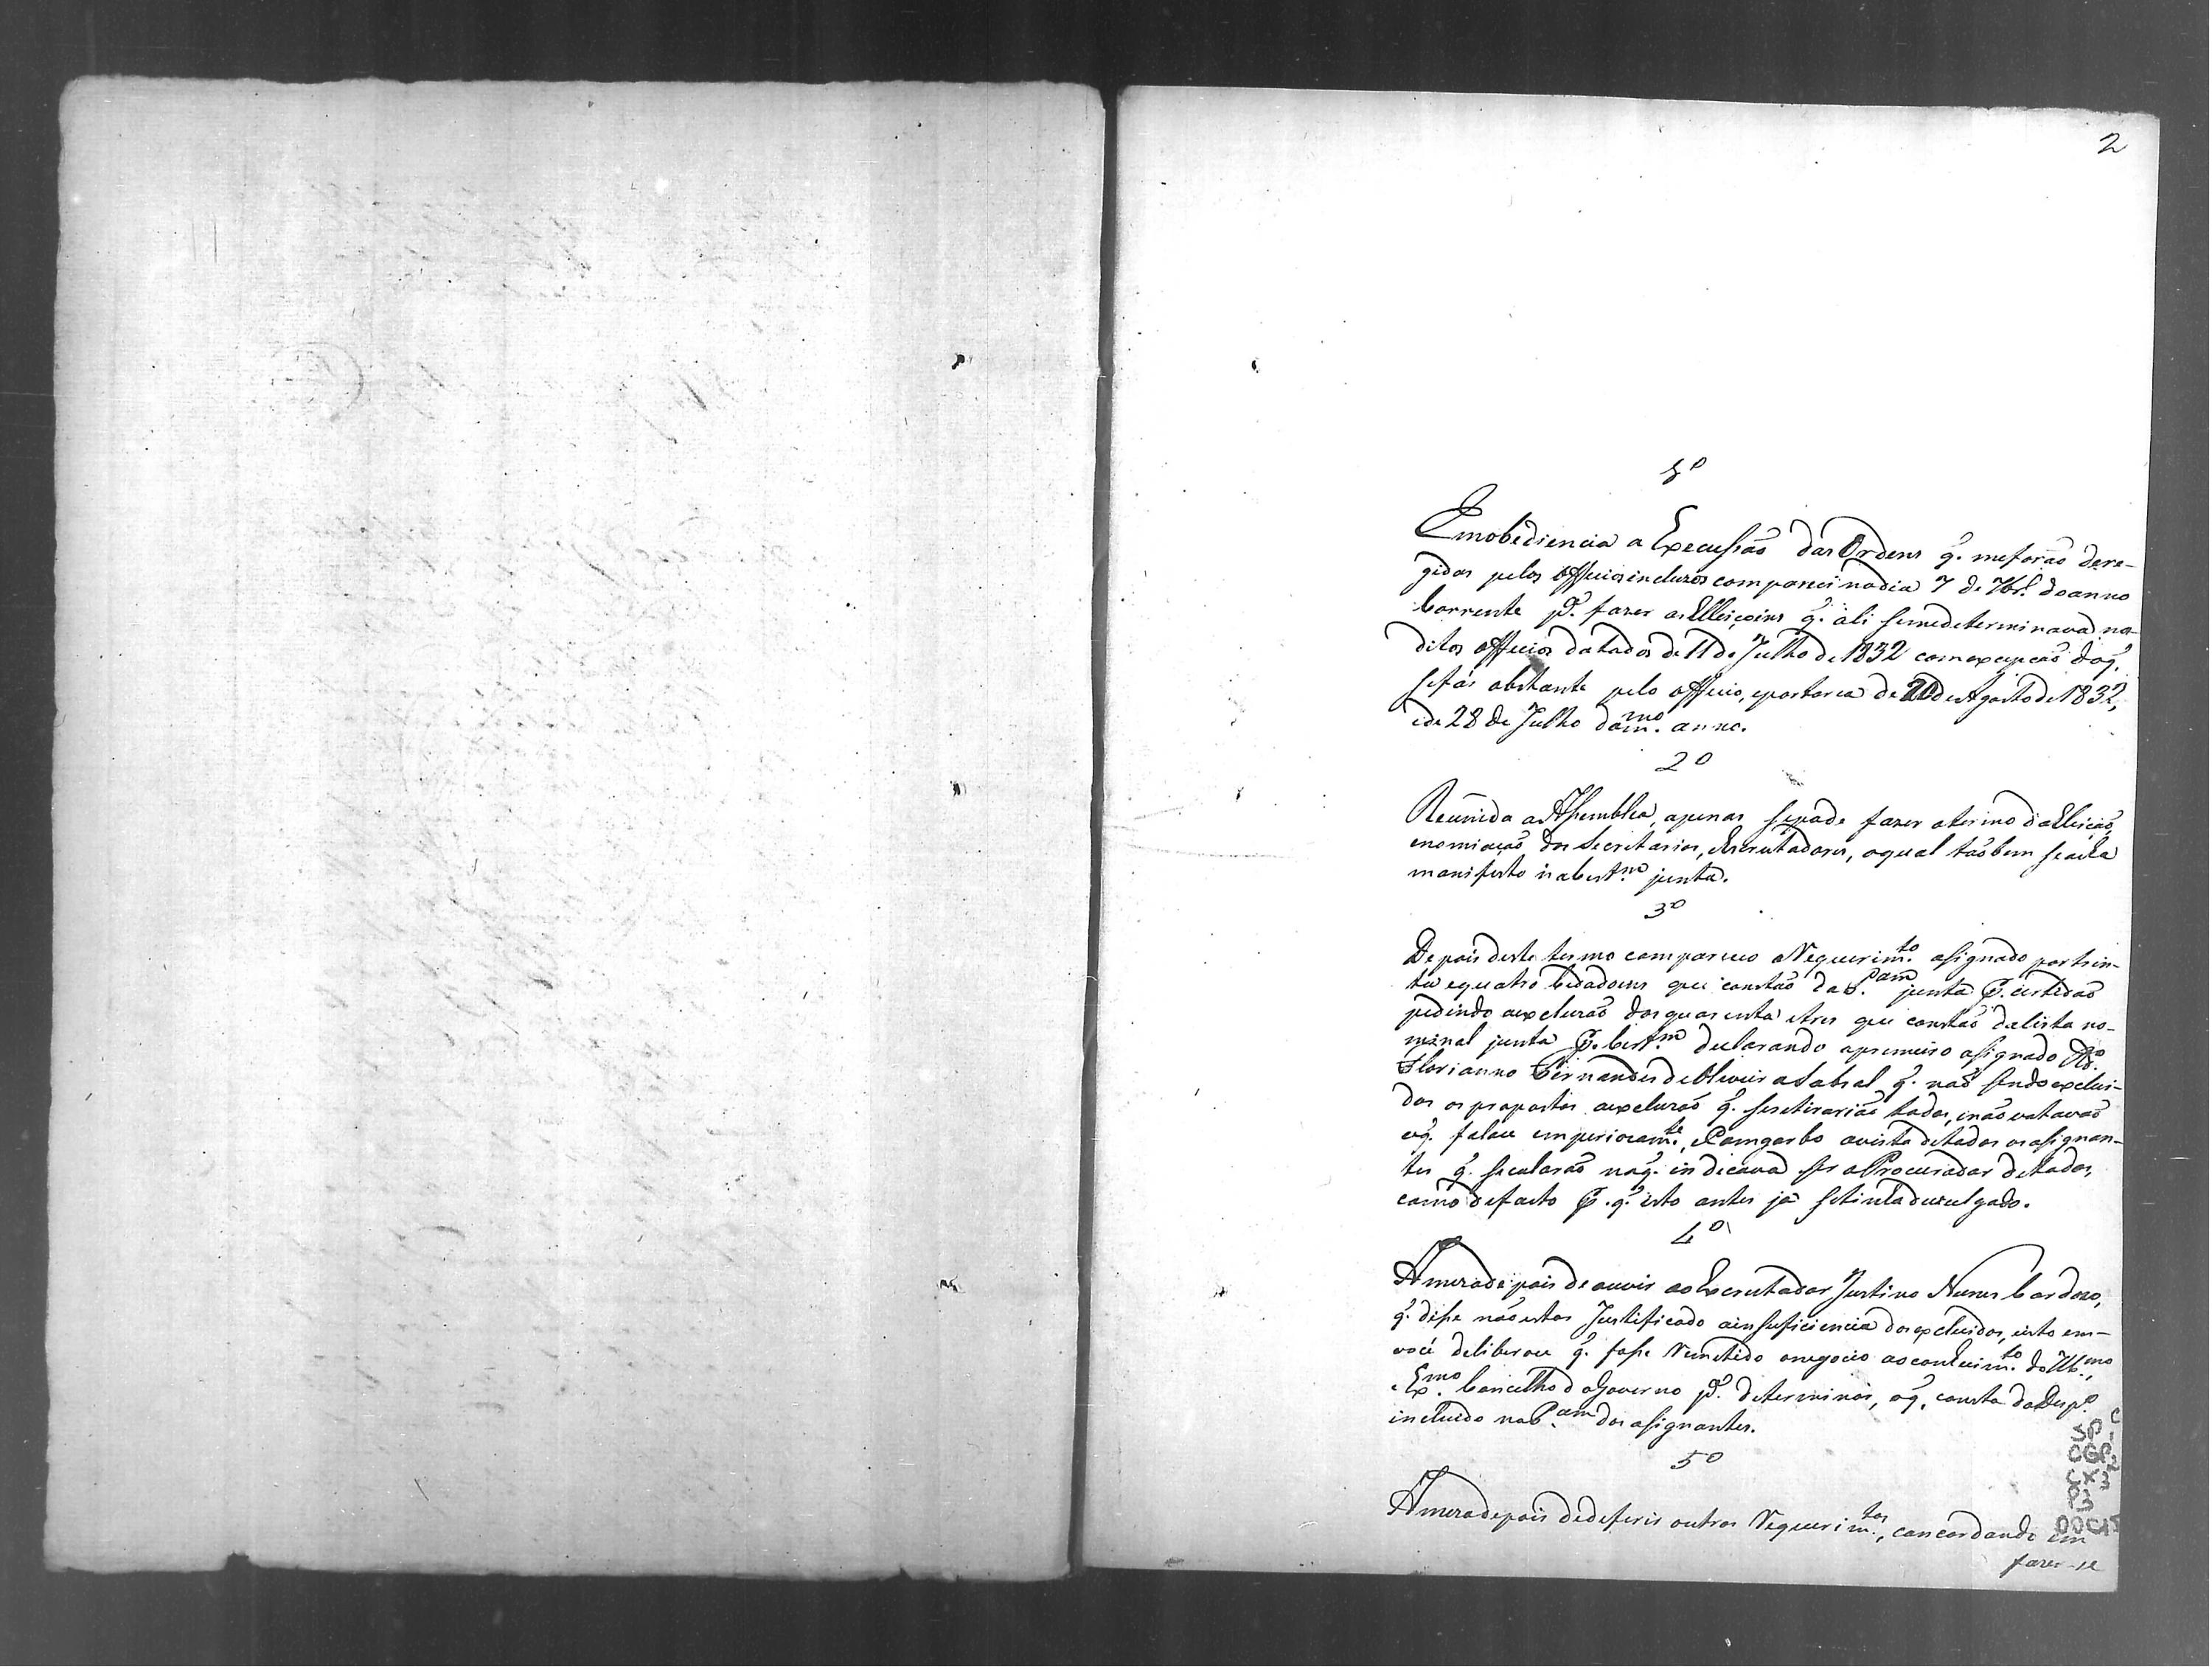 2
1º
Em obediencia a Execussão das Ordens q̃. me forão dere-
gidas pelos officios incluzos compareci no dia 7 de 7br.º do anno
Corrente pª. fazer as Elleiçoens q̃. ali se me determinava nos
ditos officios datados de 11 de Julho de 1832 com excepcão do q̃.
se fás obstante pelo officio, e portaria de 20 de Agosto de 1832,
e de 28 de Julho do m.mo anno.
2º
Reunida a Assemblea, apenas se pode fazer o termo da Elleição,
e nomiação dos Secretarios, e Escrutadores, o qual tãobem se acha
manifesto na Cert.m junta.
3º
Depois deste termo compareceo o Requerim.to assignado por trin-
ta e quatro Cidadoens que constão da P.am junta p. certidão
pedindo a excluzão dos quarenta e tres que constão da lista no-
minal junta p. Cert.m declarando o premeiro assignado
Florianno Fernandes de Oliveira Cabral q̃. não sendo exclui-
dos os propostos a excluzão q̃. se retirarião todos, e não votavão
o q̃. falou imperiozam.te, e com garbo a vista de todos os assignan-
tes q̃. se calarão no q̃. indicava ser o Procurador de todos,
como de facto p. q̃. isto antes já se tinha devulgado.
4º
A meza depois de ouvir ao Escrutador Justino Nunes Cardozo,
q̃. disse não estar Justificado a insuficiencia dos excluidos, isto em
voci deliberou q̃. fosse Remetido o negocio ao conhecim.to do Ill.mo
e Ex.mo Concelho do Governo pª. determinar, o q̃. consta do Desp.º
incluido na P.am dos assignantes.
5º
A meza depois de deferir outros Requerim.tos, concordando em
fazer-se
SP
CGP
CX3
P3
DOC15